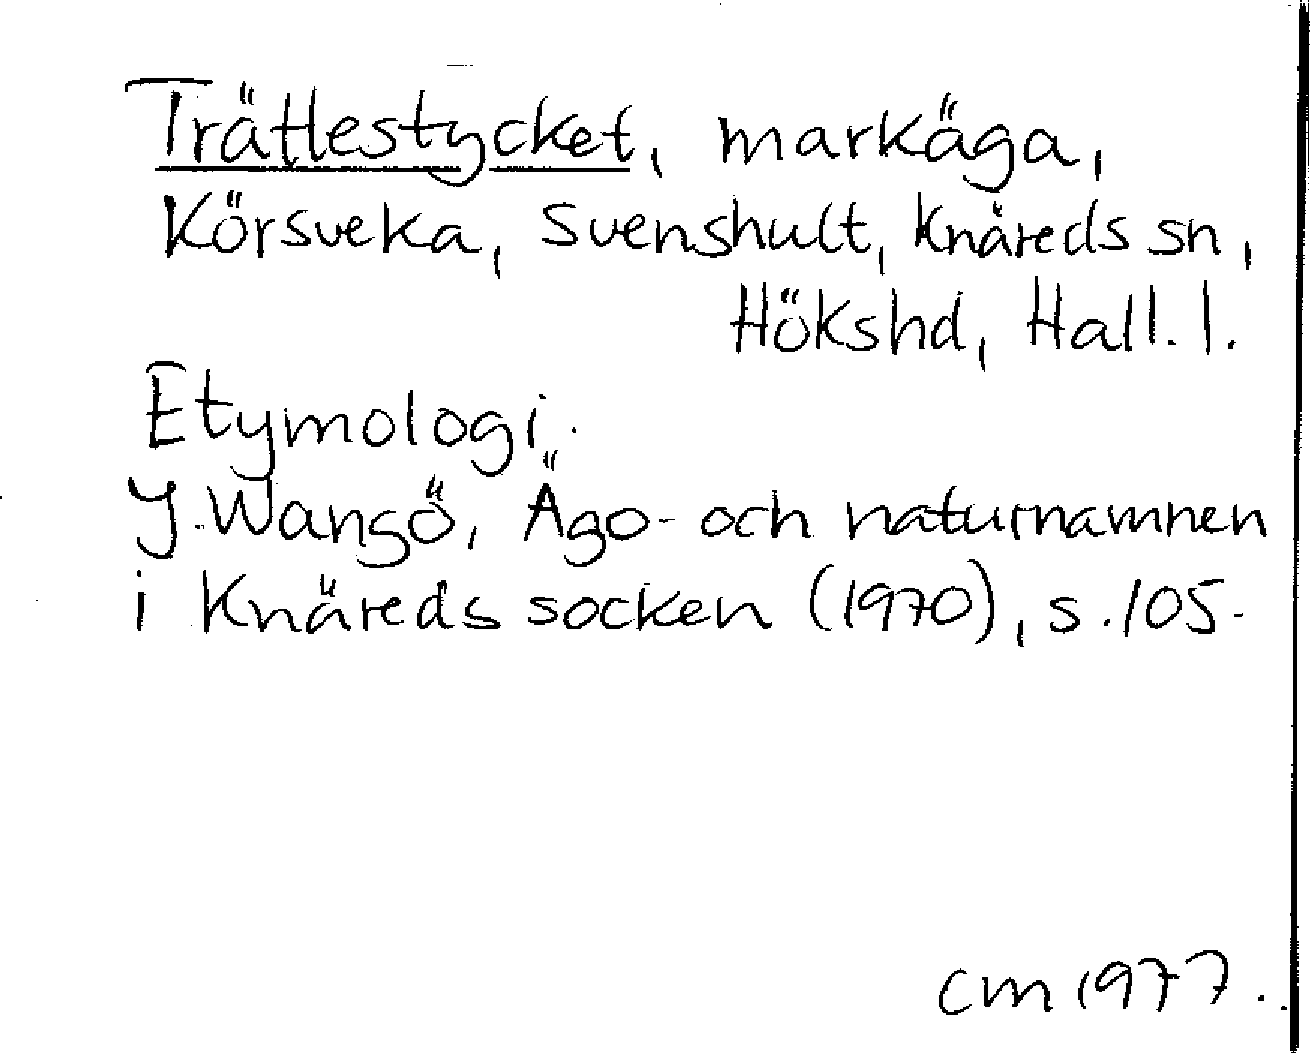 Trättestycket, markäga,
Körsveka, Svenshult, Knäreds sn,
Hökshd, Hall. l.
Etymologi.
J. Wangö, Ägo- och naturnamnen
i Knäreds socken (1970), s. 105.
CM 1977.